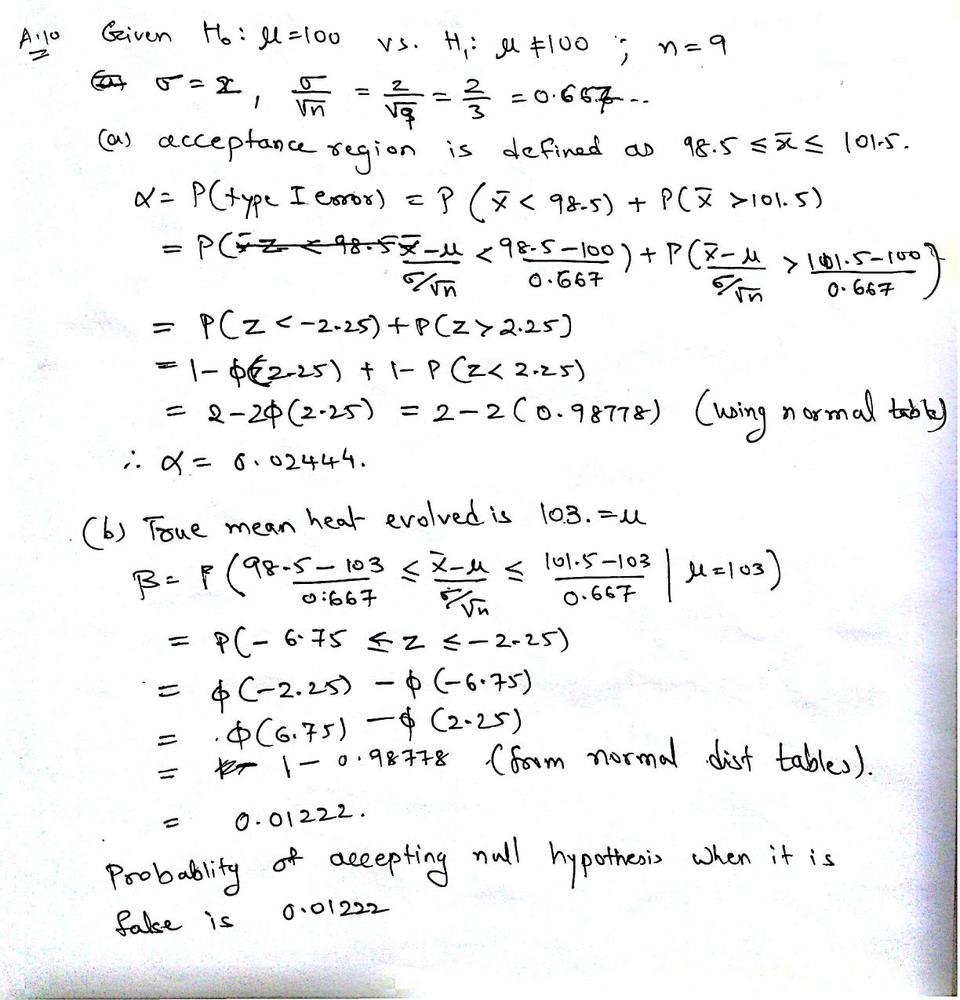 A.10 Given H₀: μ=100 vs. H₁: μ≠100 ; n=9
(a) σ = 2, σ/√n = 2/√9 = 2/3 = 0.667...
(a) acceptance region is defined as 98.5 ≤ x̄ ≤ 101.5.
α = P(type I error) = P(x̄ < 98.5) + P(x̄ > 101.5)
= P((x̄-μ)/(σ/√n) < (98.5-100)/0.667) + P((x̄-μ)/(σ/√n) > (101.5-100)/0.667)
= P(Z < -2.25) + P(Z > 2.25)
= 1-φ(2.25) + 1-P(Z < 2.25)
= 2-2φ(2.25) = 2-2(0.98778) (using normal table)
∴ α = 0.02444.
(b) True mean heat evolved is 103. = μ
β = P((98.5-103)/0.667 ≤ (x̄-μ)/(σ/√n) ≤ (101.5-103)/0.667 | μ=103)
= P(-6.75 ≤ Z ≤ -2.25)
= φ(-2.25) - φ(-6.75)
= φ(6.75) - φ(2.25)
= 1-0.98778 (from normal dist tables).
= 0.01222.
Probablity of accepting null hypothesis when it is
false is 0.01222